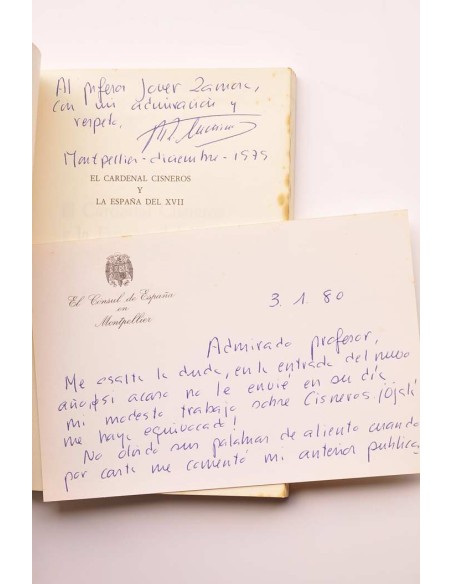 Al profesor Javier Zamora,
con mi admiración y
respeto.
Montpellier - diciembre - 1979
EL CARDENAL CISNEROS
Y
LA ESPAÑA DEL XVII
El Consul de España
en
Montpellier
3. 1. 80
Admirado profesor,
Me asalta la duda, en la entrada del nuevo
año, si acaso no le envié en su día
mi modesto trabajo sobre Cisneros. ¡Ojalá
me haya equivocado!
No olvido sus palabras de aliento cuando
por carta me comentó mi anterior publica-